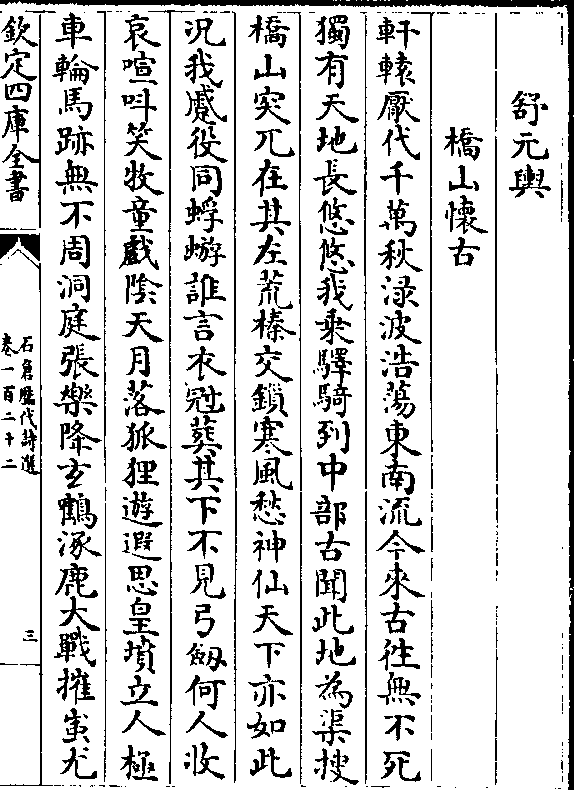 舒元輿
橋山懷古
軒轅厭代千萬秋渌波浩蕩東南流今來古往無不死
獨有天地長悠悠我乗驛騎到中部古聞此地為渠搜
橋山突兀在其左荒榛交鎖寒風愁神仙天下亦如此
況我蹙役同蜉蝣誰言衣冠葬其下不見弓劔何人收
哀喧叫笑牧童戲陰天月落狐狸遊遐思皇墳立人極
車輪馬跡無不周洞庭張樂降玄鶴涿鹿大戰摧蚩尤
欽定四庫全書
石倉歴代詩選
卷一百二十二
三